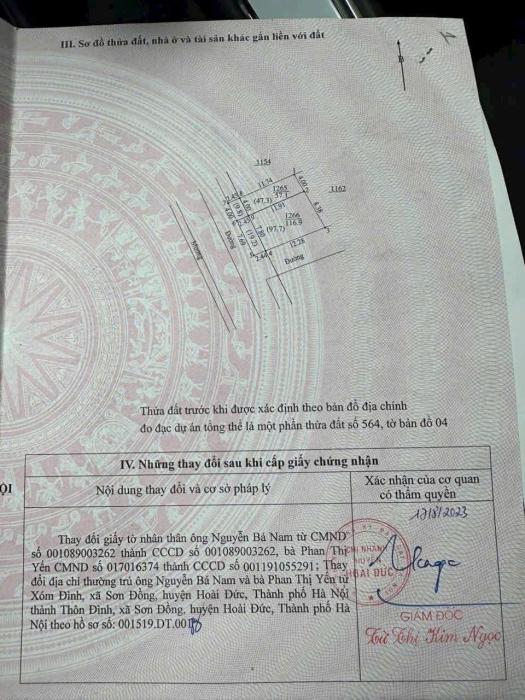 III. Sơ đồ thửa đất, nhà ở và tài sản khác gắn liền với đất
B
1154
11.74
4.00
1265
57.1
1162
(47.3)
4.00
11.91
8.18
1266
116.9
(97.7)
7.80
(19.2)
7.69
4.00
12.28
Đường
Đường
Mương
Thửa đất trước khi được xác định theo bản đồ địa chính
đo đạc dự án tổng thể là một phần thửa đất số 564, tờ bản đồ 04
IV. Những thay đổi sau khi cấp giấy chứng nhận
ỘI
Nội dung thay đổi và cơ sở pháp lý
Xác nhận của cơ quan
có thẩm quyền
17/8/2023
Thay đổi giấy tờ nhân thân ông Nguyễn Bá Nam từ CMND
số 001089003262 thành CCCD số 001089003262, bà Phan Thị
Yến CMND số 017016374 thành CCCD số 001191055291; Thay
đổi địa chỉ thường trú ông Nguyễn Bá Nam và bà Phan Thị Yến từ
Xóm Đình, xã Sơn Đồng, huyện Hoài Đức, Thành phố Hà Nội
thành Thôn Đình, xã Sơn Đồng, huyện Hoài Đức, Thành phố Hà
Nội theo hồ sơ số: 001519.DT.00
CHI NHÁNH
HUYỆN
HOÀI ĐỨC
GIÁM ĐỐC
Từ Thị Kim Ngọc